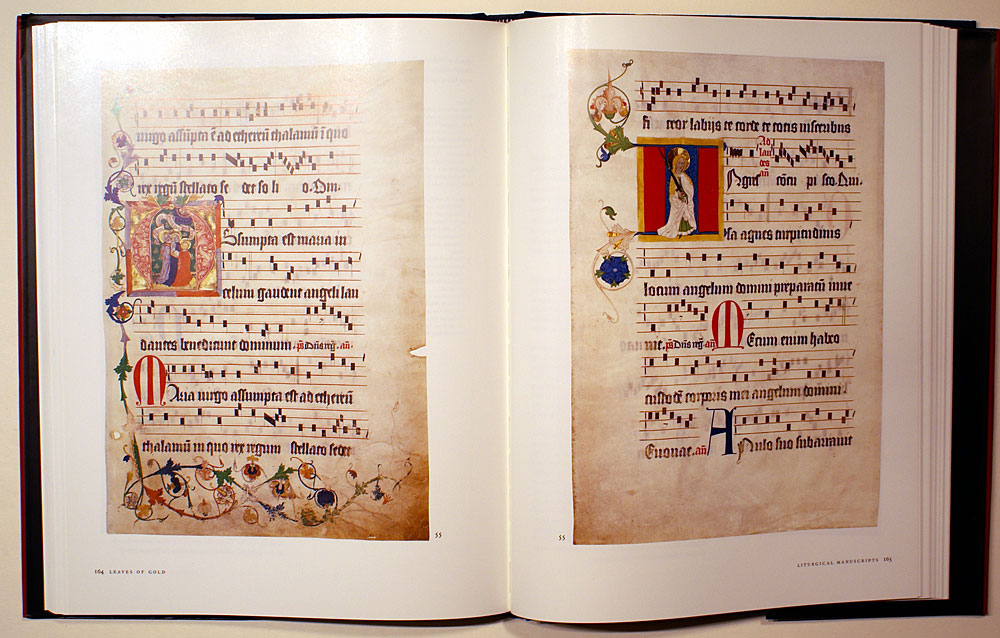 virgo assūpta ē ad ethereū thalamū ī quo
rex regū stellato se det so li o. Qm.
Assumpta est maria in
celum gaudent angeli lau
dantes benedicunt dominum. ps Dn̄s reg̃. añ.
Maria virgo assumpta est ad ethereū
thalamū in quo rex regum stellato sedet
55
164 LEAVES OF GOLD
fi teor labijs te corde te totis visceribus
Ad lau des añ
Agnes
Ipsa agnes turpitudinis
locum angelum domini preparatū inve
nit. ps Dn̄s reg̃. añ Mecum enim habeo
custodē corporis mei angelum domini
Evovae. añ Anulo suo subarravit
55
LITURGICAL MANUSCRIPTS 165